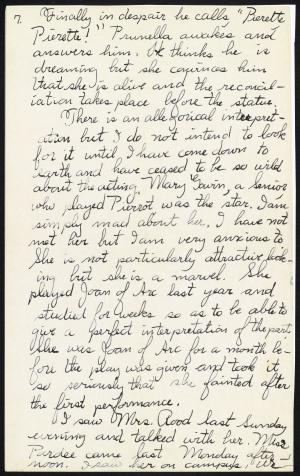 7. Finally in despair he calls "Pierette
Pierette!" Prunella awakes and
answers him. He thinks he is
dreaming but she convinces him
that she is alive and the reconcil-
iation takes place before the statue.
There is an allegorical interpret-
ation but I do not intend to look
for it until I have come down to
earth and have ceased to be so wild
about the acting. Mary Gavin, a senior
who played Pierrot was the star. I am
simply mad about her. I have not
met her but I am very anxious to.
She is not particularly attractive look-
ing but she is a marvel. She
played Joan of Arc last year and
studied for weeks so as to be able to
give a perfect interpretation of the part.
She was Joan of Arc for a month be-
fore the play was given and took it
so seriously that she fainted after
the first performance.
I saw Mrs. Rood last Sunday
evening and talked with her. Miss
Pardee came last Monday after-
noon. I saw her on campus,